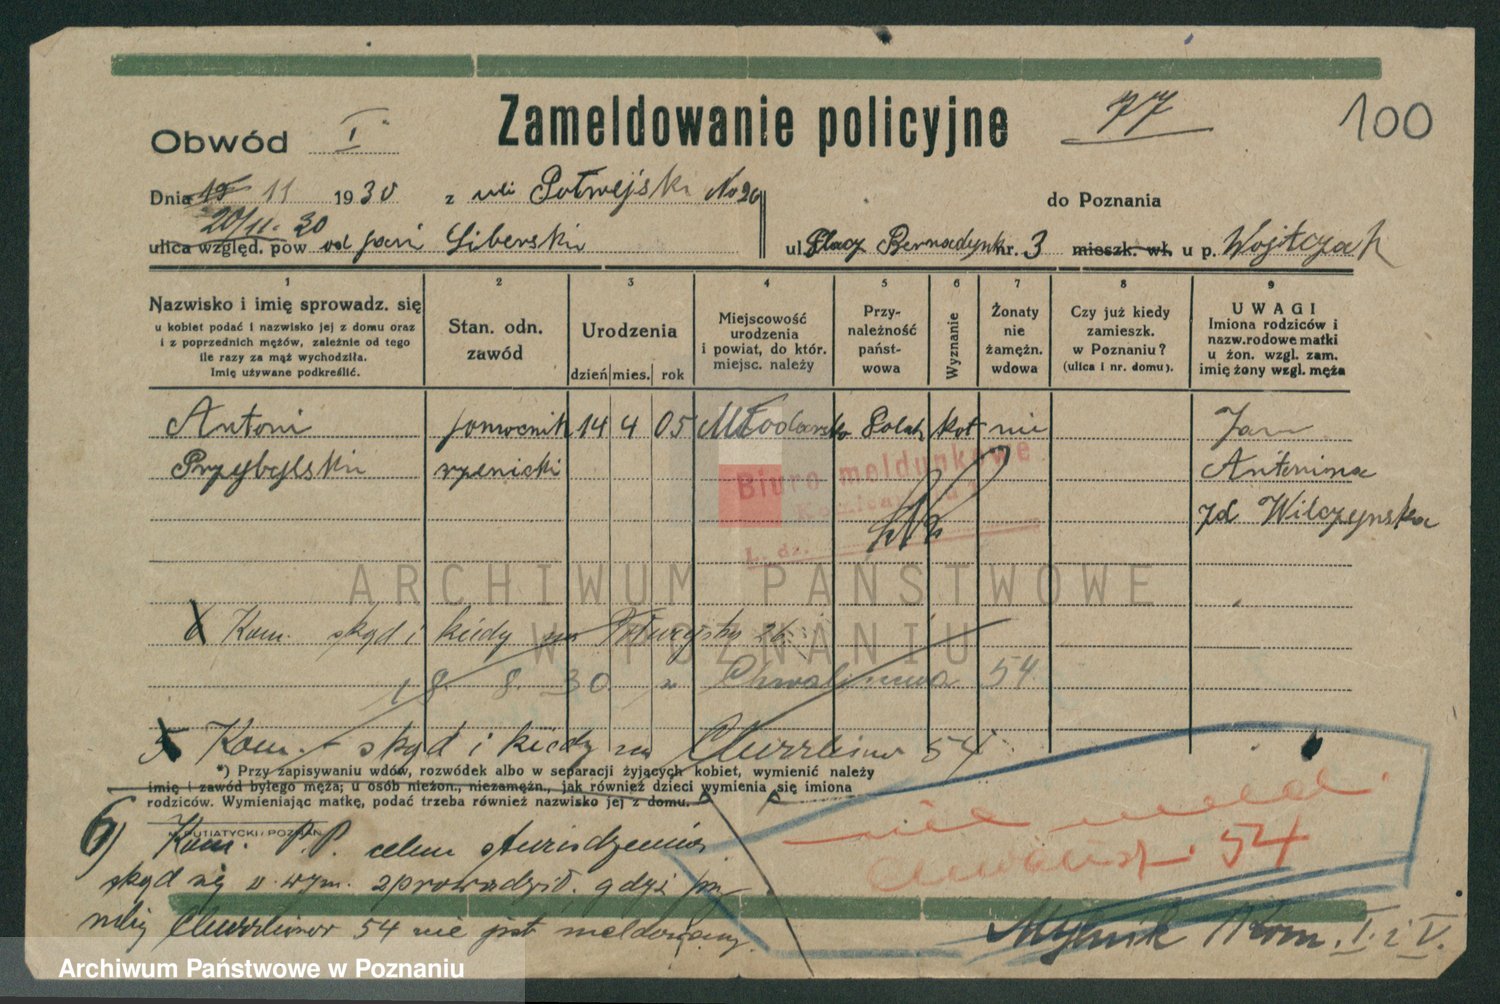 Zameldowanie policyjne
77
100
Obwód I
Dnia 15 11 1930 z uli No 26
do Poznania
20/11. 30
ulica względ. pow od pani Liberski
ul. Plac Bernadynk nr. 3 mieszk. wł. u p. Wojtczak
1 2 3 4 5 6 7 8 9
Nazwisko i imię sprowadz. się
u kobiet podać i nazwisko jej z domu oraz
i z poprzednich mężów, zależnie od tego
ile razy za mąż wychodziła.
Imię używane podkreślić.
Stan. odn.
zawód
Urodzenia
dzień mies. rok
Miejscowość
urodzenia
i powiat, do któr.
miejsc. należy
Przy-
należność
państ-
wowa
Wyznanie
Żonaty
nie
żamężn.
wdowa
Czy już kiedy
zamieszk.
w Poznaniu?
(ulica i nr. domu).
UWAGI
Imiona rodziców i
nazw.rodowe matki
u żon. wzgl. zam.
imię żony wzgl. męża
Antoni pomocnik 14 4 05 Polak kat nie Jan
Przybylski rzeźnicki Antonina
zd Wilczynska
Biuro meldunkowe
L. dz.
ARCHIWUM PAŃSTWOWE
W POZNANIU
Kom. skąd i kiedy na 26
18 8 30 z 54
5 Kom. skąd i kiedy na 54
*) Przy zapisywaniu wdów, rozwódek albo w separacji żyjących kobiet, wymienić należy
imię i zawód byłego męża; u osób nieżon., niezamężn., jak również dzieci wymienia się imiona
rodziców. Wymieniając matkę, podać trzeba również nazwisko jej z domu.
PUTIATYCKI POZNAŃ
6) Kom. P.P. celem stwierdzenia
skąd się w. wym. sprowadził, gdzi przy
54 nie jest meldowany.
nie meld.
54
Kom. I i V.
Archiwum Państwowe w Poznaniu